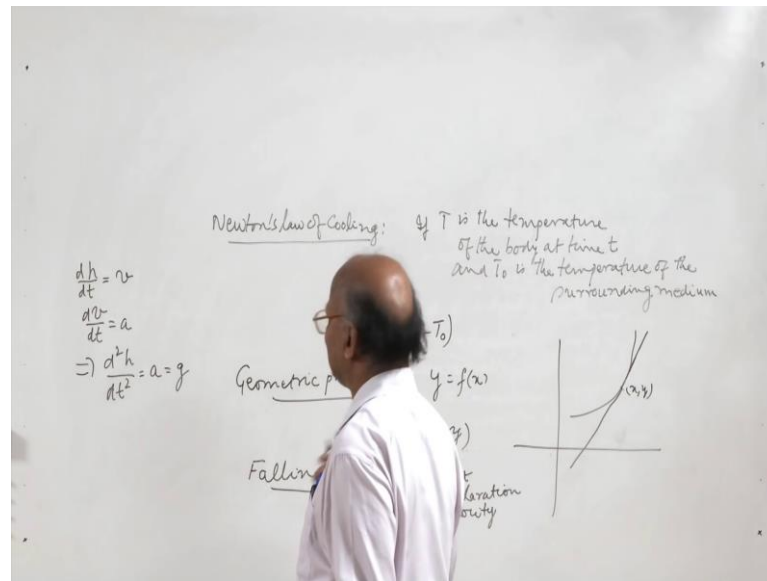 Newton's law of Cooling: If T is the temperature
of the body at time t
and T₀ is the temperature of the
surrounding medium
dh/dt = v
dv/dt = a
=) d²h/dt² = a = g
T₀)
Geometric p
y = f(x)
(x,y)
y)
Fallin
t